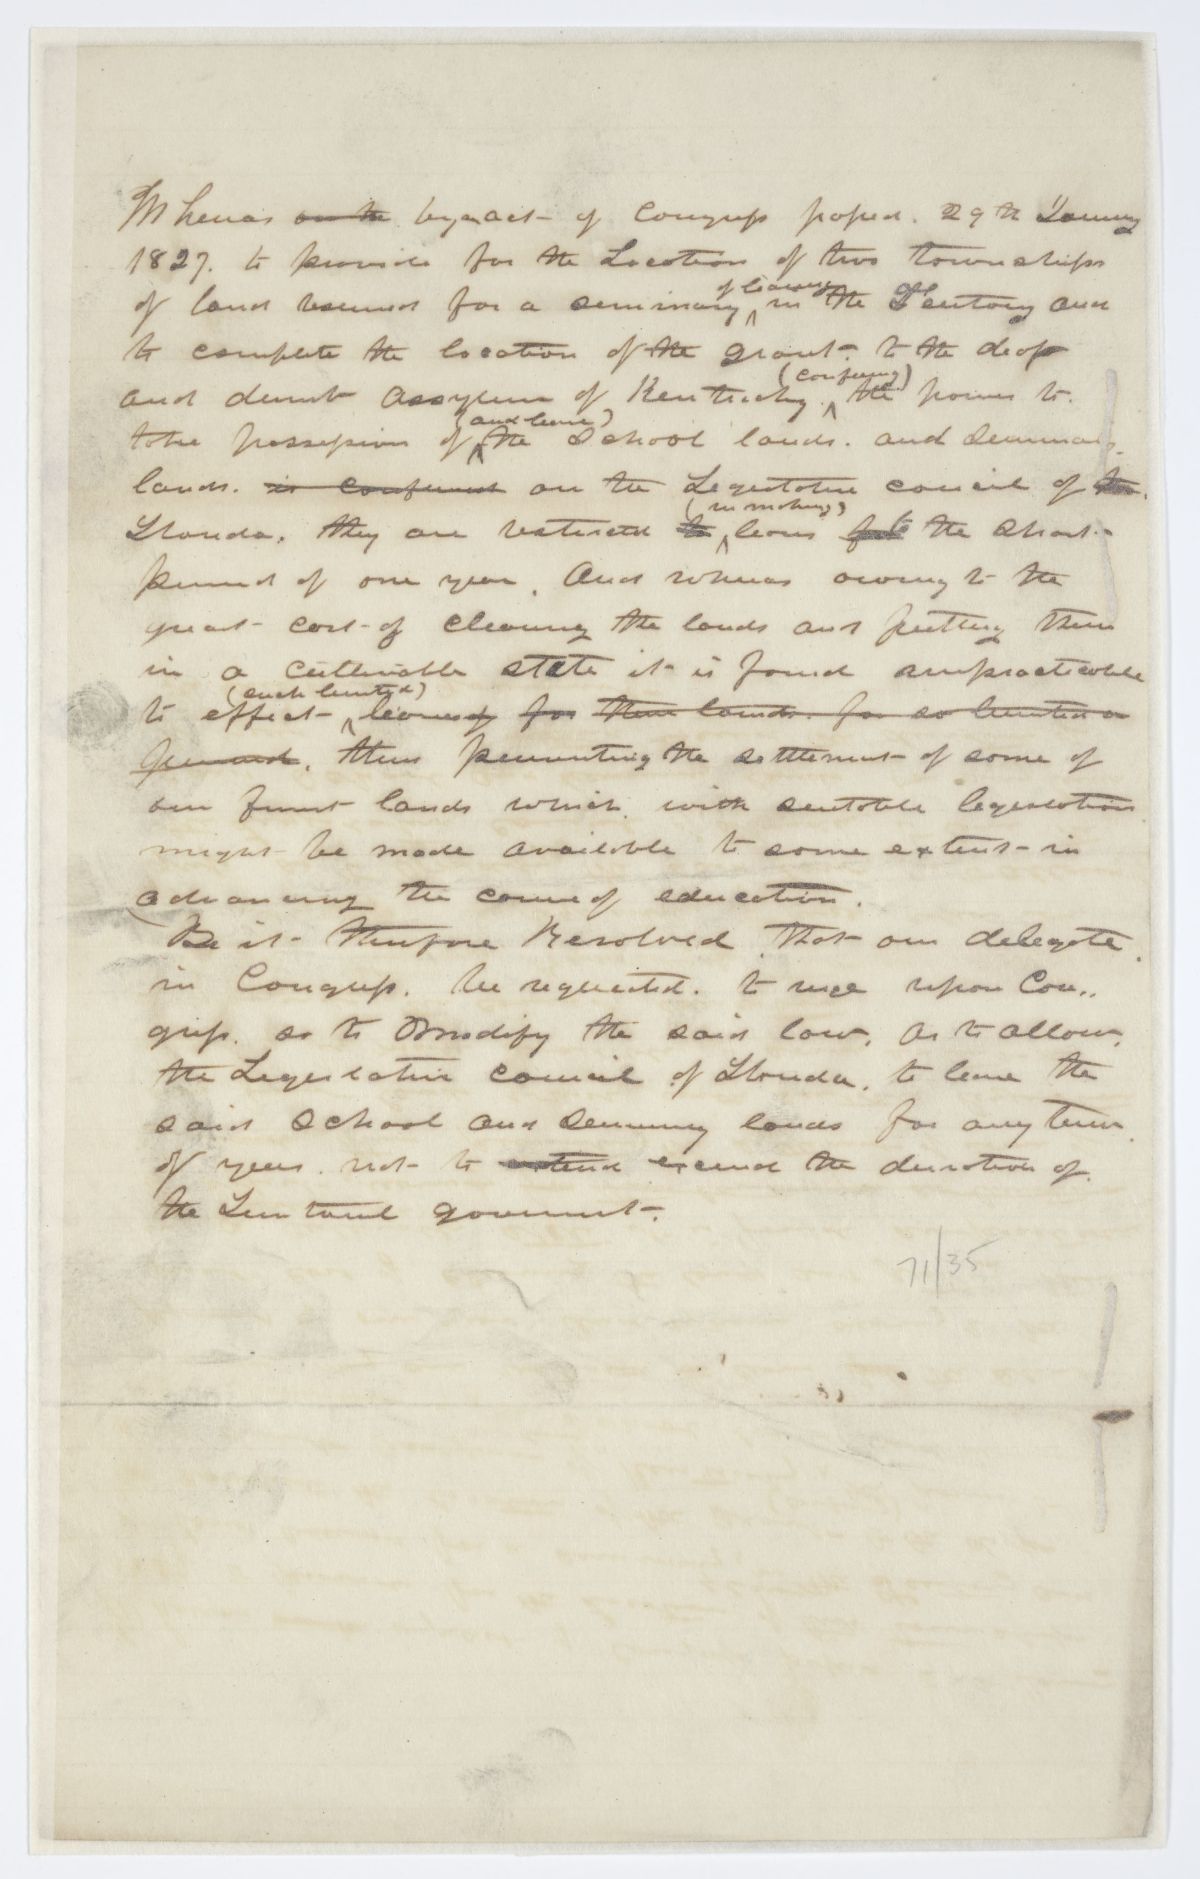 Whereas on the by an act of Congress passed. 29th January
1827. to provide for the Location of two townships
of learning
of land reserved for a seminary in the Territory and
to complete the location of the grant to the deaf
(confering)
and dumb assylum of Kentucky. the power to
(and lease)
take possession of the School lands. and Seminary
lands. is conferred on the Legislative council of
(in making)
Florida, they are restricted to leases for to the short
period of one year. And whereas owing to the
great cost of clearing the lands and putting them
in a cultivable state it is found impracticable
(such limited)
to effect leases for these lands for so limited a
period, thus preventing the settlement of some of
our finest lands which with suitable legislation
might be made available to some extent in
advancing the cause of education.
Be it Therefore Resolved That our delegate
in Congress. be requested. to urge upon Con..
gress. so to modify the said law, as to allow
the Legislative council of Florida, to lease the
said School and Seminary lands for any term
of years not to extend exceed the duration of
the Territorial government.
71/35